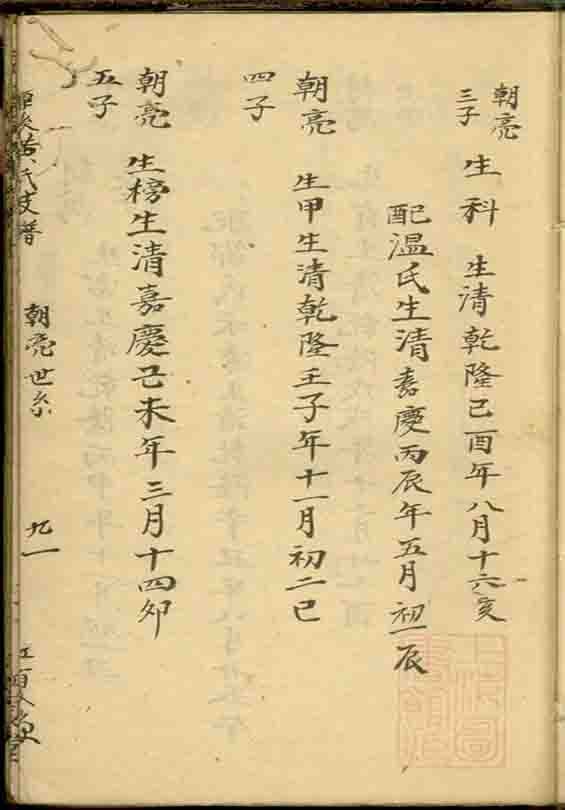 朝亮
三子
生科 生清乾隆己酉年八月十六亥
配溫氏生清嘉慶丙辰年五月初一辰
朝亮
四子
生甲生清乾隆壬子年十一月初二巳
朝亮
五子
生榜生清嘉慶己未年三月十四卯
氏支譜
朝亮世系
九一